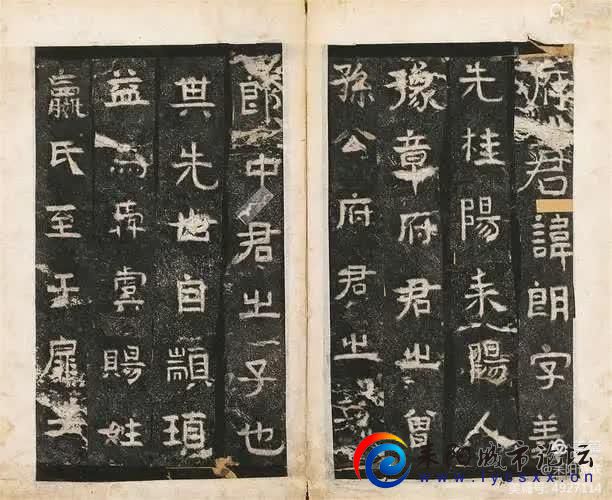 府君諱朗字義
先桂陽耒陽人
豫章府君之曾
孫公府君之
郎中君之子也
其先也自顓頊
益為舜虞賜姓
嬴氏至于
耒阳城市论坛
4927114